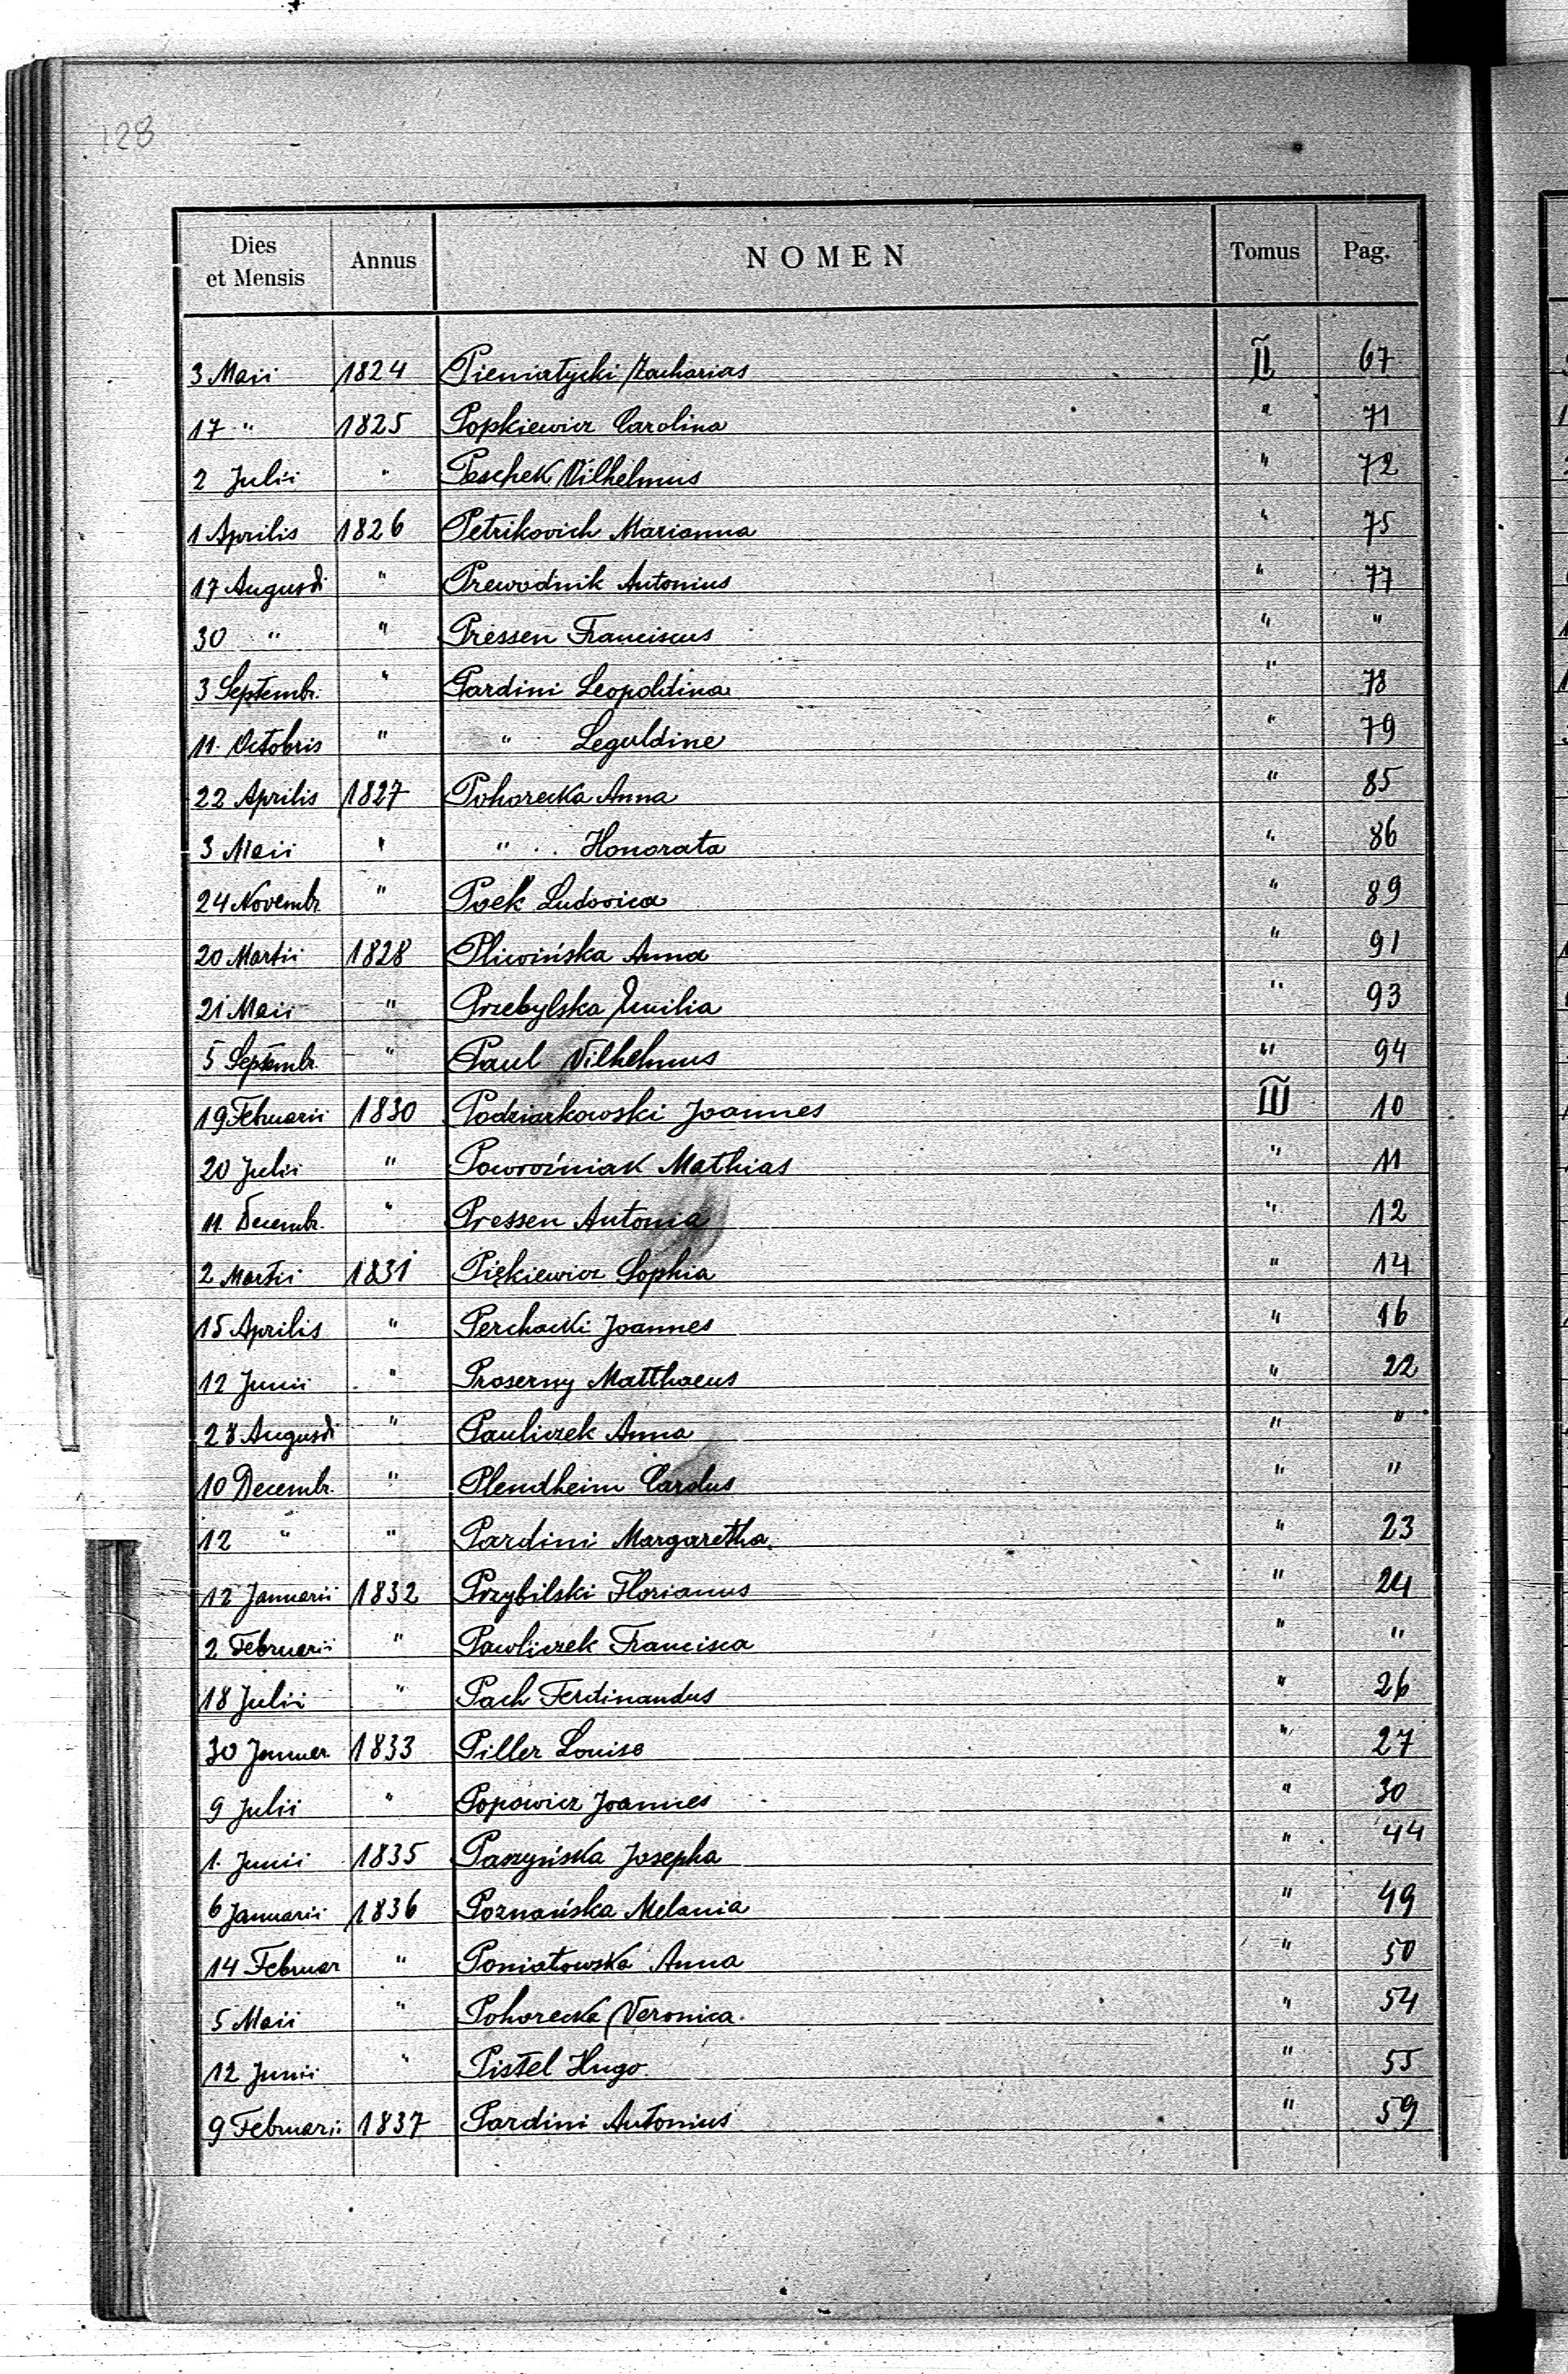 128
Dies et Mensis Annus NOMEN Tomus Pag.
3 Maii 1824 Pieniatycki Zacharias II 67
17 " 1825 Popkiewicz Carolina " 71
2 Julii " Peschek Vilhelmus " 72
1 Aprilis 1826 Petrikovich Marianna " 75
17 Augusti " Prewodnik Antonius " 77
30 " " Pressen Franciscus " "
3 Septembr. " Pardini Leopoldina " 78
11. Octobris " " Leguldine " 79
22 Aprilis 1827 Pohorecka Anna " 85
3 Maii " " Honorata " 86
24 Novembr. " Poek Ludovica " 89
20 Martii 1828 Pliwińska Anna " 91
21 Maii " Przebylska Emilia " 93
5 Septembr. " Paul Vilhelmus " 94
19 Februarii 1830 Podziarkowski Joannes III 10
20 Julii " Powroźniak Mathias " 11
11. Decembr. " Pressen Antonia " 12
2 Martii 1831 Piękiewicz Sophia " 14
15 Aprilis " Perchacki Joannes " 16
12 Junii " Proserny Matthaeus " 22
28 Augusti " Pauliczek Anna " "
10 Decembr. " Plendheim Carolus " "
12 " " Pardini Margaretha. " 23
12 Januarii 1832 Przybilski Florianus " 24
2 Februarii " Pawliczek Francisca " "
18 Julii " Pach Ferdinandus " 26
30 Januar. 1833 Piller Louise " 27
9 Julii " Popowicz Joannes " 30
1. Junii 1835 Paszyńska Josepha " 44
6 Januarii 1836 Poznańska Melania " 49
14 Februar " Poniatowska Anna " 50
5 Maii " Pohorecka Veronica. " 54
12 Junii " Pistel Hugo. " 55
9 Februarii 1837 Pardini Antonius " 59